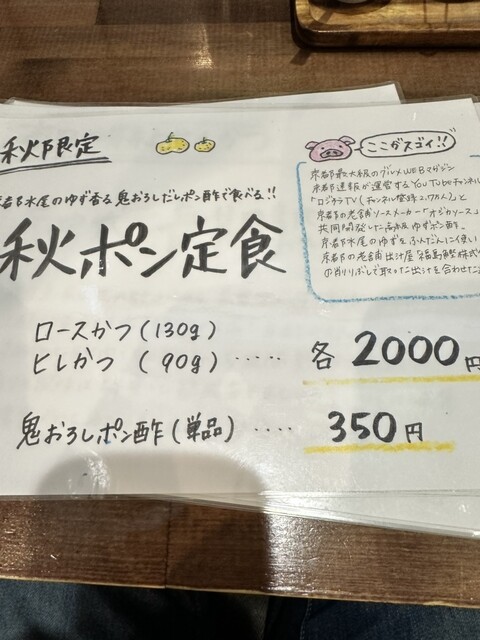 秋限定
ここがスゴイ!!
京都水尾のゆず香る鬼おろしだしポン酢で食べる!!
秋ポン定食
京都最大級のグルメWEBマガジン
京都速報が運営するYouTubeチャンネル
「ロジウラTV(チャンネル登録
京都の老舗ソースメーカー「オジカソース」
共同開発した高級ゆずポン酢。
京都水尾のゆずをふんだんに使い
京都の老舗出汁屋 福島鰹株式
の削りぶしで取った出汁を合わせた
ロースかつ(130g)
ヒレかつ (90g) ····· 各 2000円
鬼おろしポン酢(単品) ···· 350円